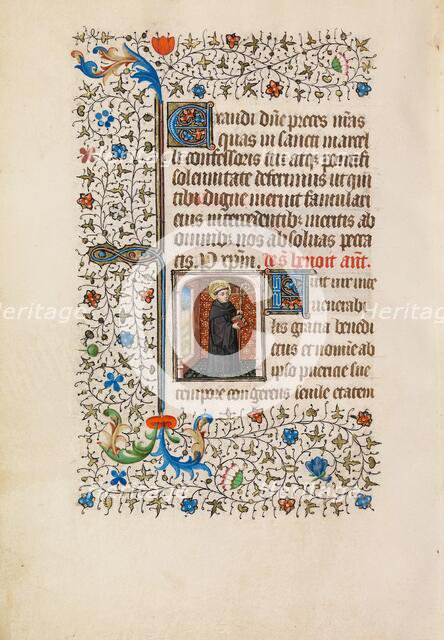 Exaudi dn̄e preces nr̄as
quas in sancti marcel
li confessoris tui atqꝫ pontifi
solemnitate deferimus ut qui
tibi digne meruit famulari
eius intercedentibꝫ meritis ab
omnibꝫ nos absolue pecca
tis. P xp̄m. de s. benoit ant̄.
Fuit vir vite
venerabi
lis gratia benedi
ctus et nomine ab
ipso puericie sue
tempore cor gerens senile etatem
Heritage
Heritage
Heritage
Heritage